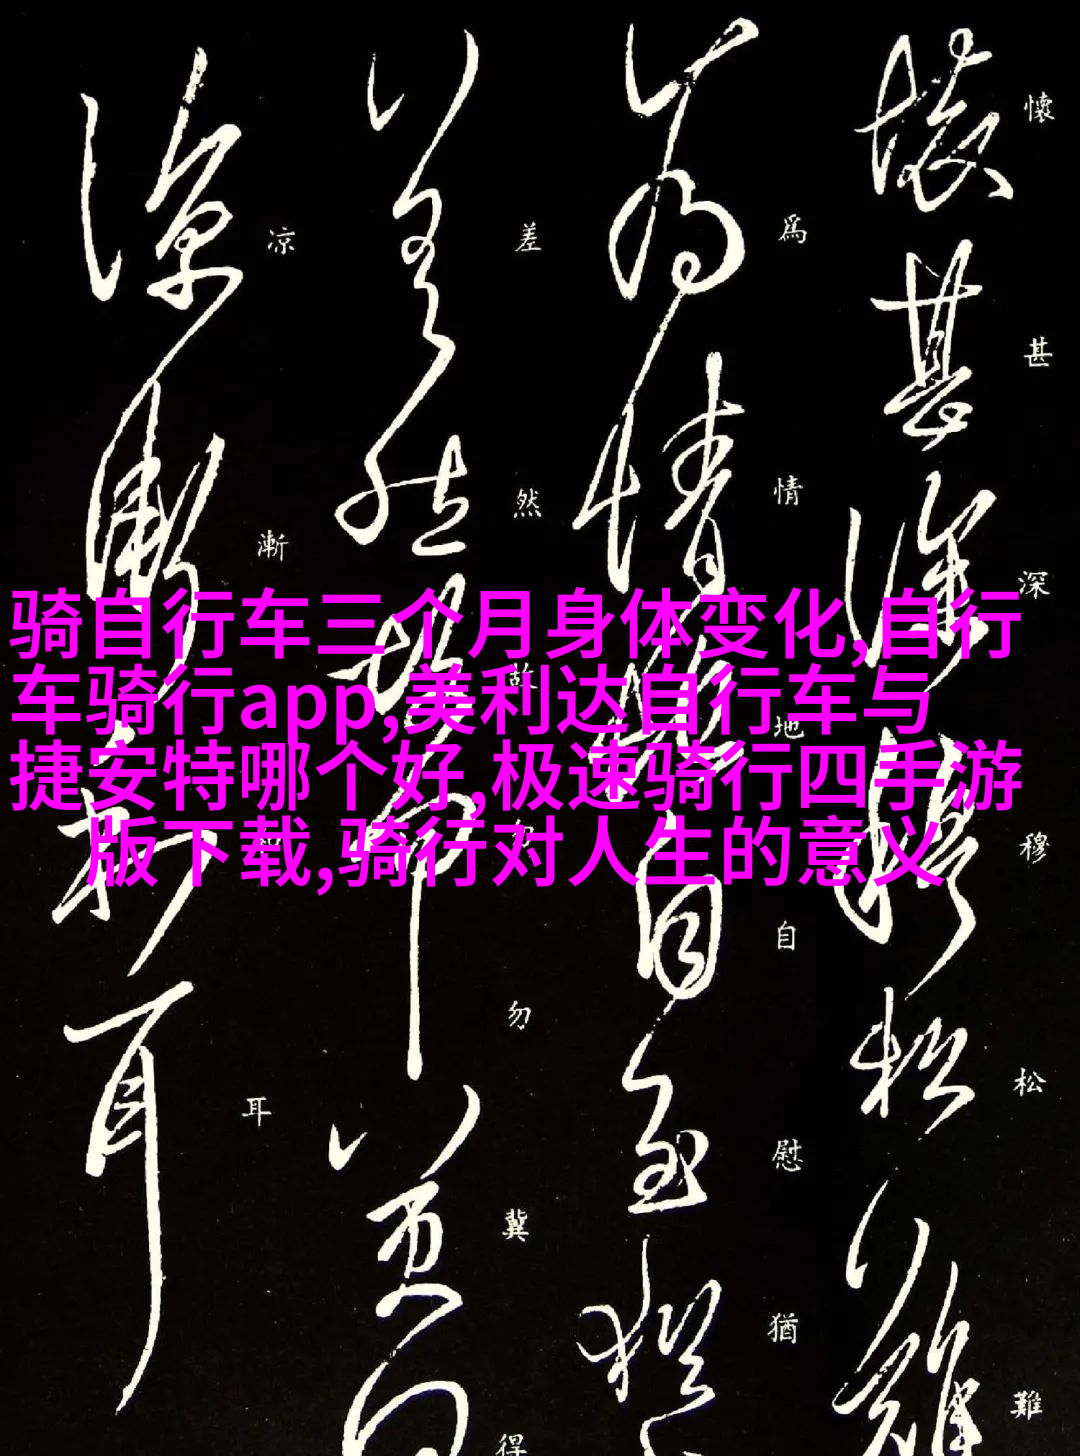 骑自行车三个月身体变化,自行
车骑行app,美利达自行车与
捷安特哪个好,极速骑行四手游
版下载,骑行对人生的意义
懷甚深穆松難
爲情地自慰猶
差然故勿冀得
凉漸耳